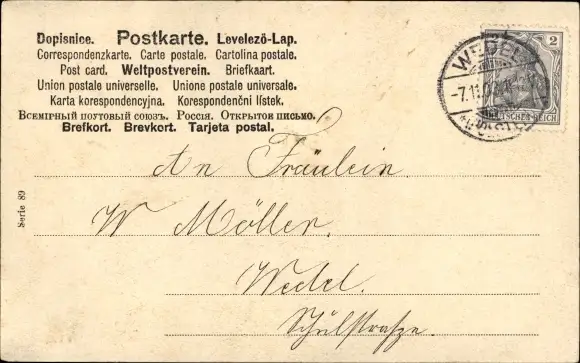 Dopisnice. Postkarte. Levelező-Lap.
Correspondenzkarte. Carte postale. Cartolina postale.
Post card. Weltpostverein. Briefkaart.
Union postale universelle. Unione postale universale.
Karta korespondencyjna. Korespondenční lístek.
Всемірный почтовый союзъ. Россія. Открытое письмо.
Brefkort. Brevkort. Tarjeta postal.
WEDEL
-7.11.
(HOLSTEIN)
2
DEUTSCHES REICH
An Fräulein
W Möller.
Wedel.
Schulstraße.
Serie 89